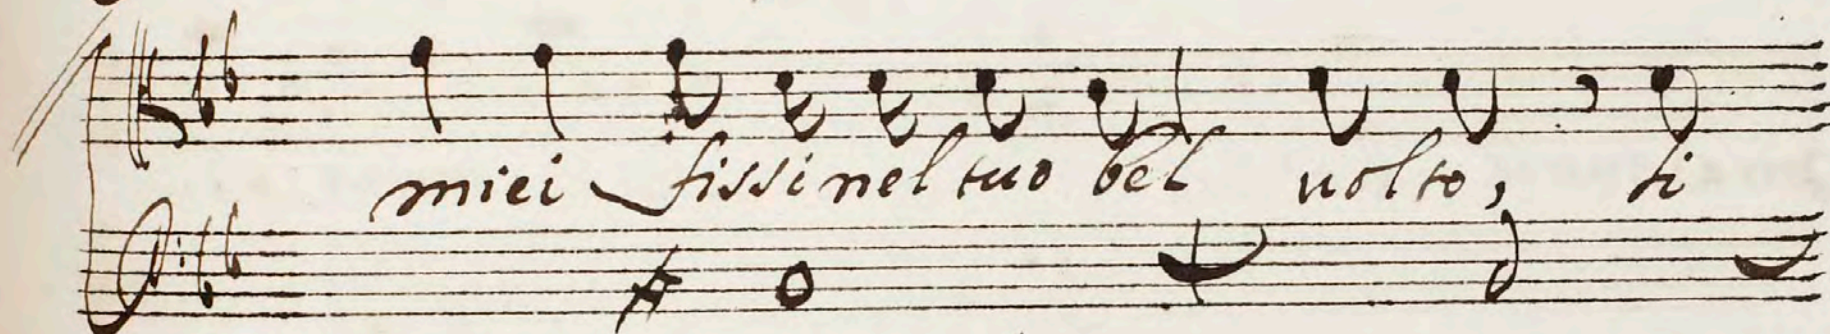 miei fissi nel tuo bel uolto, ti